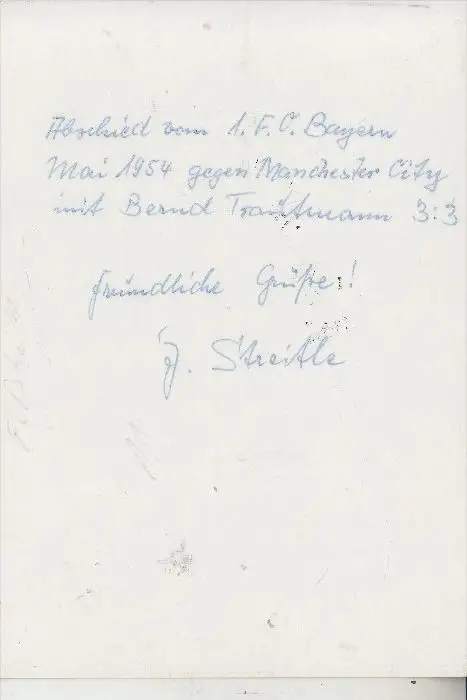 Abschied vom 1. F. C. Bayern
Mai 1954 gegen Manchester City
mit Bernd Trautmann 3:3
freundliche Grüße!
J. Streitle